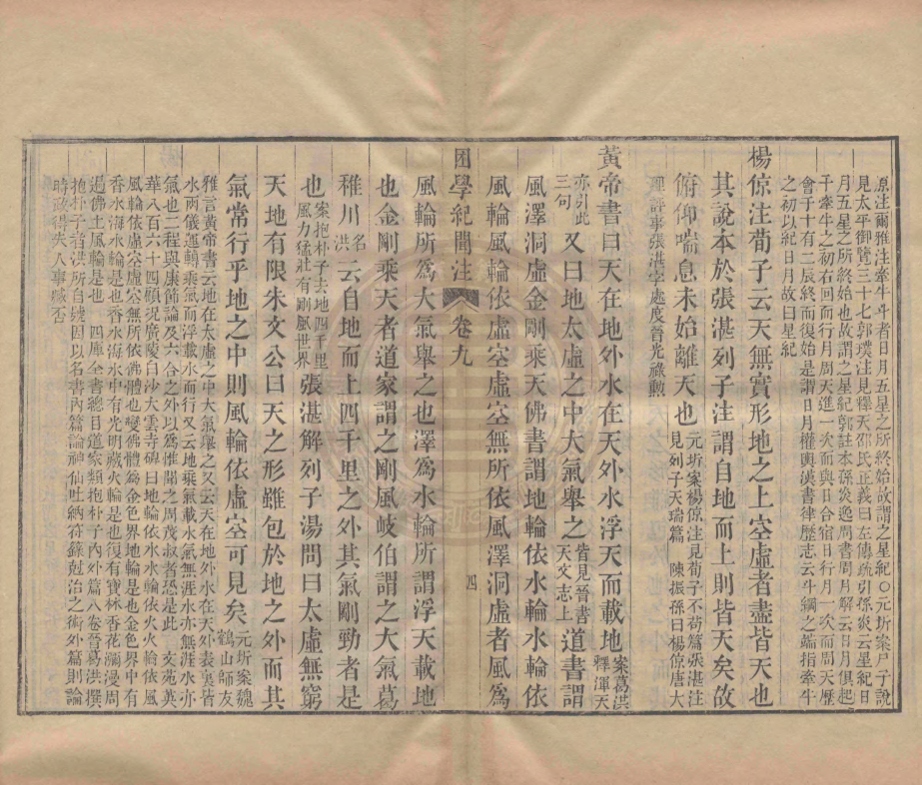 原注爾雅注牽牛斗者日月五星之所終始故謂之星紀〇元圻案尸子說
見太平御覽三十七郭璞注見釋天邵氏正義曰左傳疏引孫炎云星紀日
月五星之所終始也故謂之星紀郭註本孫炎逸周書周月解云日月俱起
于牽牛之初右回而行月周天進一次而與日合宿日行月一次而周天歷
會于十有二辰終而復始是謂日月權輿漢書律歷志云斗綱之端指牽牛
之初以紀日月故曰星紀
楊倞注荀子云天無實形地之上空虛者盡皆天也
其說本於張湛列子注謂自地而上則皆天矣故
俯仰喘息未始離天也
元圻案楊倞注見荀子不苟篇張湛注
見列子天瑞篇 陳振孫曰楊倞唐大
理評事張湛字處度晉光祿勲
黃帝書曰天在地外水在天外水浮天而載地
案葛洪
釋渾天
亦引此
三句
又曰地太虛之中大氣舉之
皆見晉書
天文志上
道書謂
風澤洞虛金剛乘天佛書謂地輪依水輪水輪依
風輪風輪依虛空虛空無所依風澤洞虛者風爲
困學紀聞注 卷九 四
風輪所爲大氣舉之也澤爲水輪所謂浮天載地
也金剛乘天者道家謂之剛風岐伯謂之大氣葛
稚川
名
洪
云自地而上四千里之外其氣剛勁者是
也
案抱朴子去地四千里
風力猛壯有剛風世界
張湛解列子湯問曰太虛無窮
天地有限朱文公曰天之形雖包於地之外而其
氣常行乎地之中則風輪依虛空可見矣
元圻案魏
鶴山師友
雅言黃帝書云地在太虛之中大氣舉之又云天在地外水在天外表裏皆
水兩儀運轉乘氣而浮載水而行又云地乘氣載水氣無涯水亦無涯水亦
氣也二程與康節論及六合之外以爲惟聞之周茂叔者恐是此 文苑英
華八百六十四顧況廣陵白沙大雲寺碑曰地輪依水水輪依火火輪依風
風輪依虛空虛空無所依佛體也變佛體爲金色界地輪是也金色界中有
香水海水輪是也香水海中有光明藏火輪是也復有寶林香花瀰漫周
遍佛土風輪是也 四庫全書總目道家類抱朴子內外篇八卷晉葛洪撰
抱朴子者洪所自號因以名書內篇論神仙吐納符籙尅治之術外篇則論
時政得失人事臧否